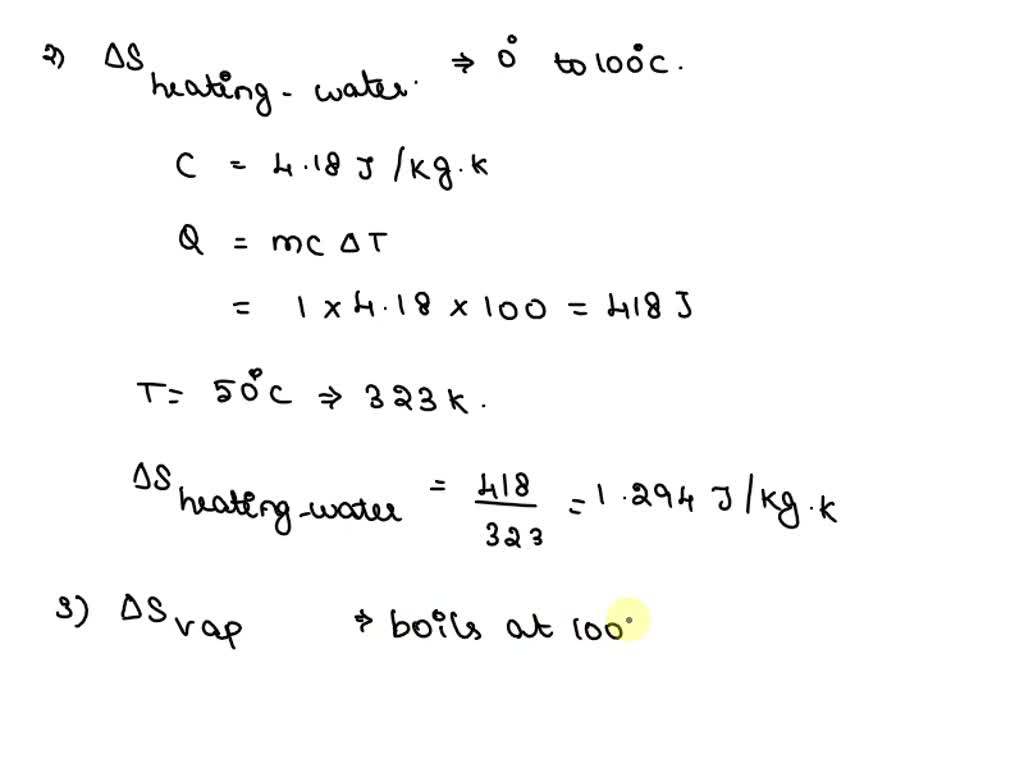 2) ΔS heating-water. ⇒ 0° to 100°C.
C = 4.18 J/kg.k
Q = mc ΔT
= 1 x 4.18 x 100 = 418 J
T = 50°C ⇒ 323 k.
ΔS heating-water = 418/323 = 1.294 J/kg.k
3) ΔS vap ⇒ boils at 100°